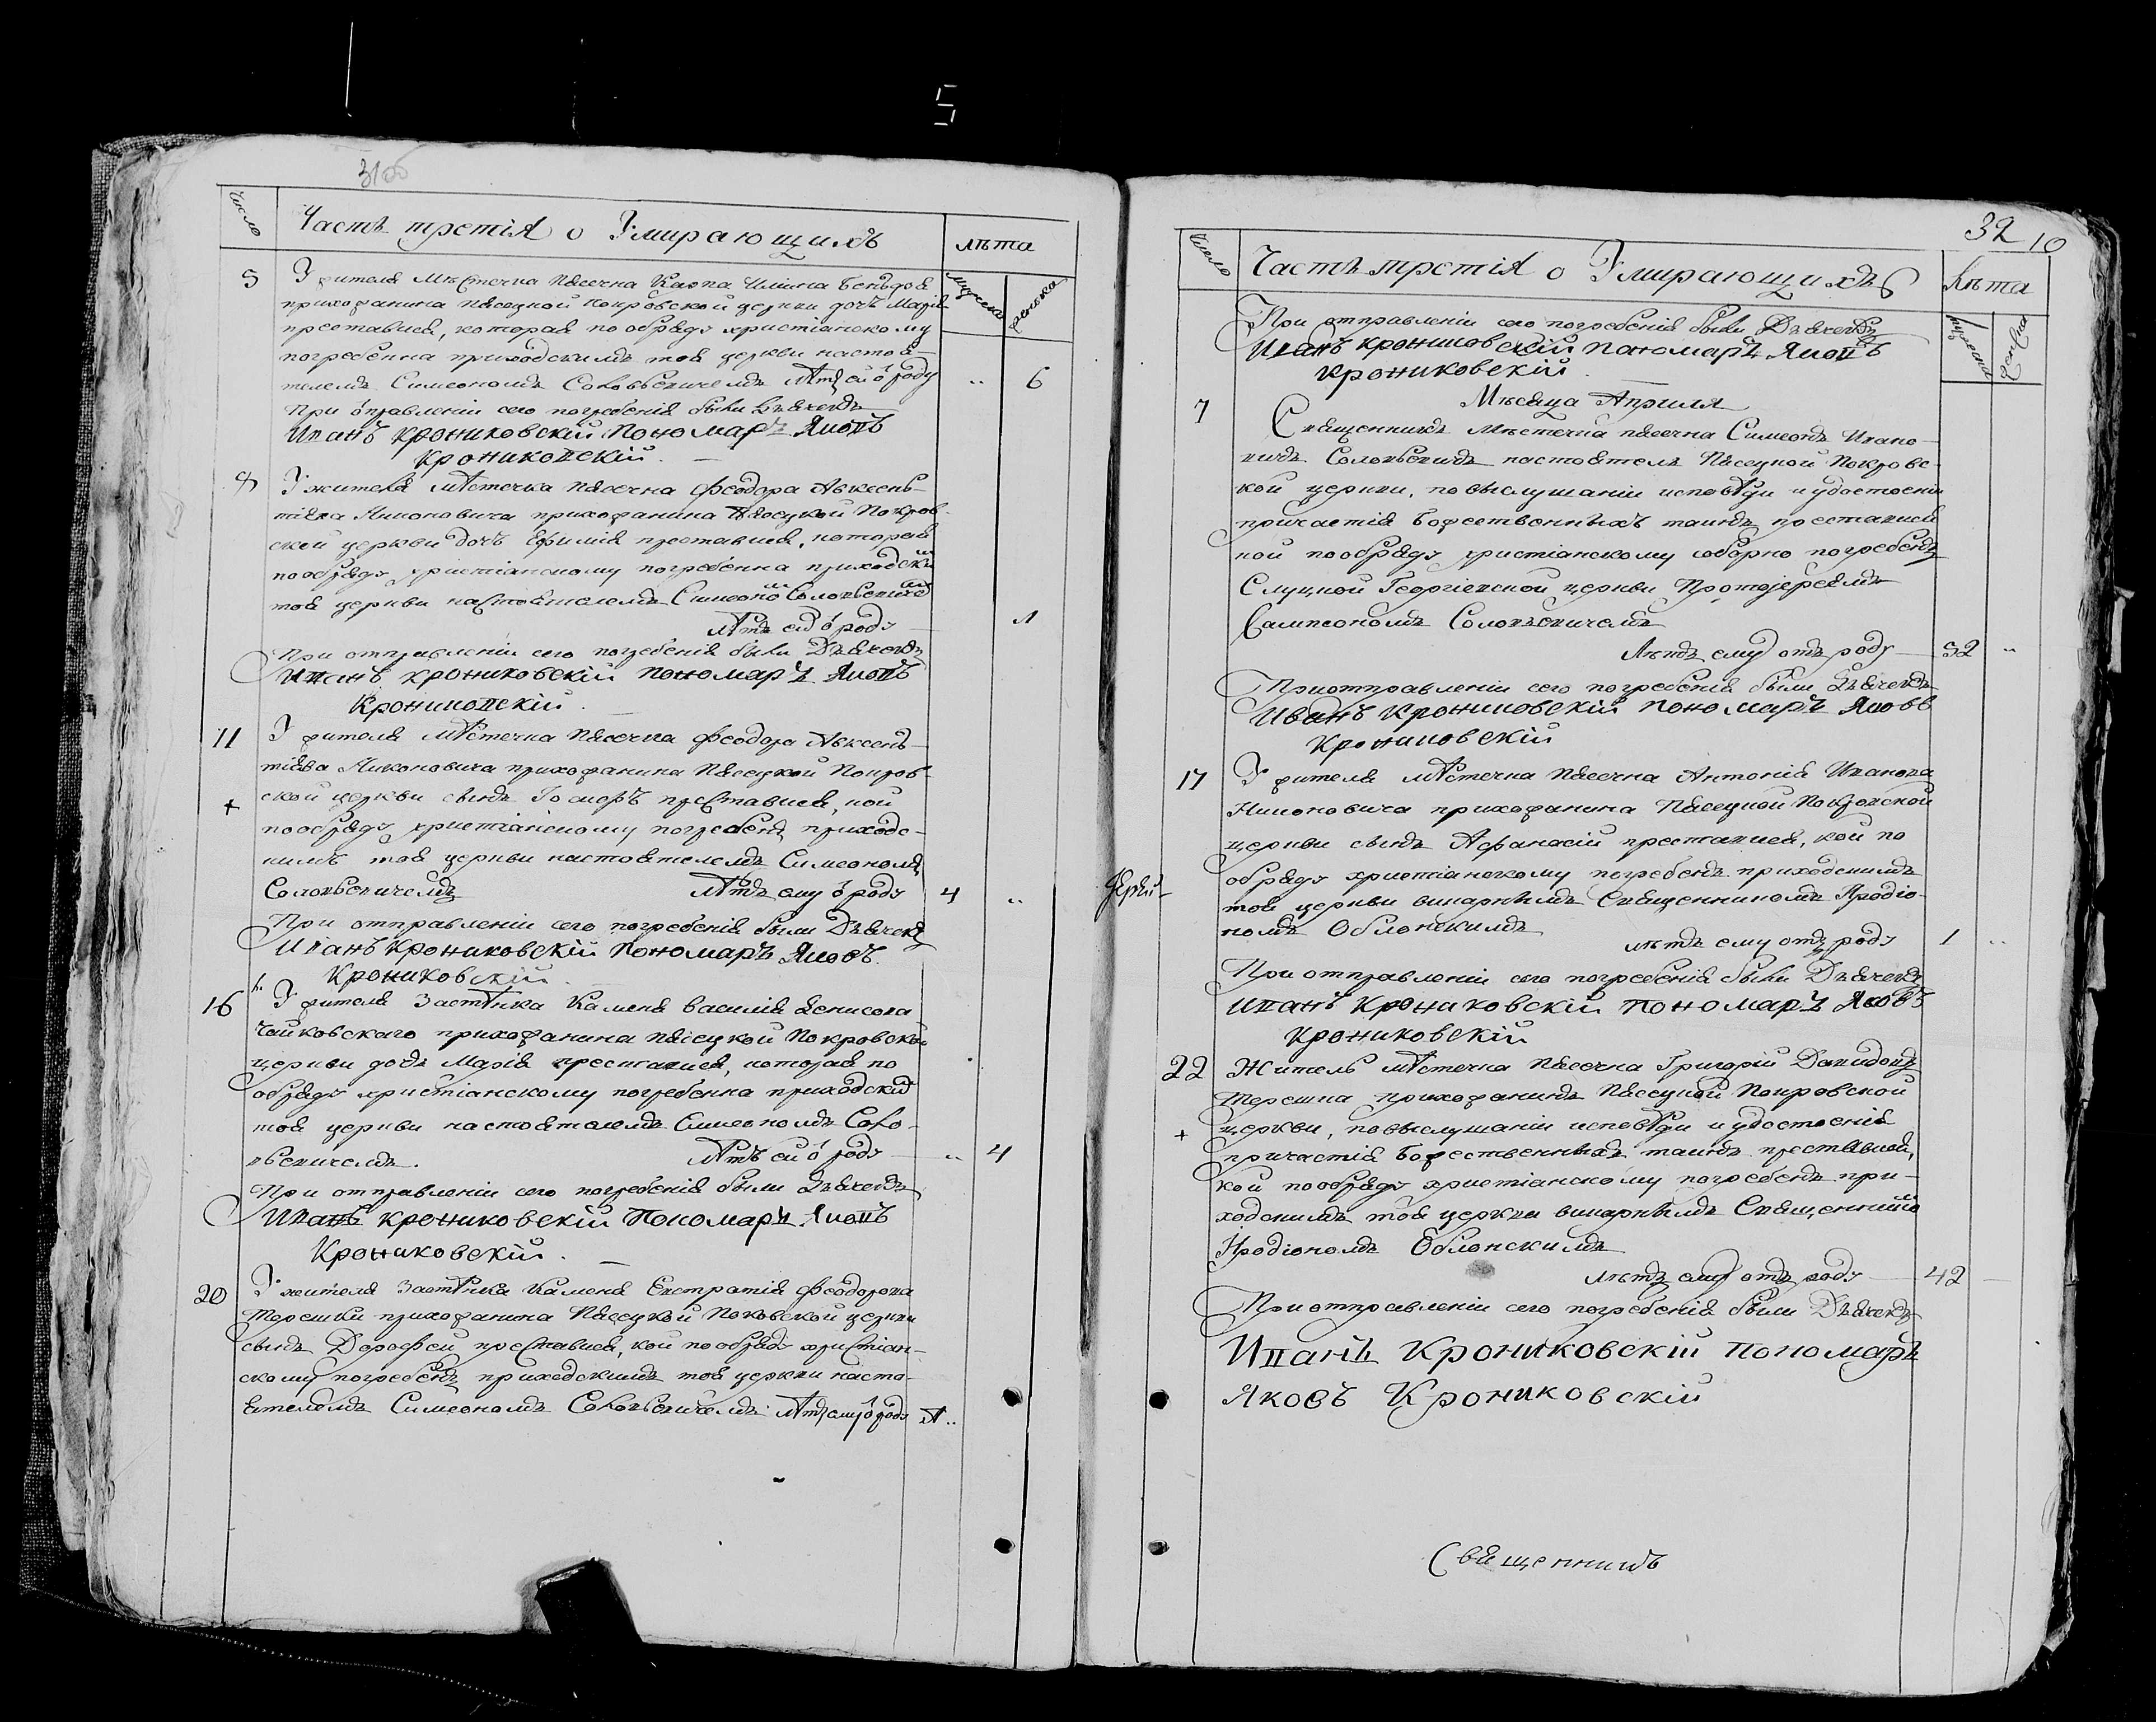 31об
Число
Часть третія о Умирающихъ
лѣта
мужеска
женска
5
У жителя Мѣстечка Пясечна Карпа Ильина
прихожанина Пясецкой Покровской церкви дочь Марія
преставися, которая по обряду христіанскому
погребенна приходскимъ тоя церкви настоя-
телемъ Симеономъ Соловьевичемъ лѣтъ ей о̄ роду
.. 6
При о̄правленіи сего погребенія были Дьячекъ
Иванъ Крониковскій Пономарь Яковъ
Крониковскій.
8
У жителя мѣстечка Пясечна Феодора Авксень-
тіева Никоновича прихожанина Пясецкой Покров-
ской церкви дочь Ефимія преставися, которая
по обряду христіанскому погребенна приходски
тоя церкви настоятелемъ Симеоно Соловьевиче
Лѣтъ ей о̄ роду
1
При отправленіи сего погребенія были Дьячекъ
Иванъ Крониковскій Пономарь Яковъ
Крониковскій.
11
У жителя мѣстечка Пясечна Феодора Авксень-
тіева Никоновича прихожанина Пясецкой Покров-
ской церкви сынъ преставися, кой
+
по обряду христіанскому погребенъ приходс-
кимъ тоя церкви настоятелемъ Симеономъ
Соловьевичемъ лѣтъ ему о̄ роду
4 ..
При отправленіи сего погребенія были Дьячекъ
Иванъ Крониковскій Пономарь Яковъ.
Крониковскій.
16
У жителя застѣнка Каменя Василія Денисова
Чайковскаго прихожанина Пясецкой Покровской
церкви дочь Марія преставися, которая по
обряду христіанскому погребенна приходски
тоя церкви настоятелемъ Симеономъ Соло-
вьевичемъ. лѣтъ ей о̄ роду
.. 4
При отправленіи сего погребенія были Дьячекъ
Иванъ Крониковскій Пономарь Яковъ
Крониковскій.
20
У жителя застѣнка Каменя Евстратія Феодорова
Терешки прихожанина Пясецкой Поковской церкви
сынъ Дорофей преставися, кой по обряду христіан-
скому погребенъ приходскимъ тоя церкви насто-
ятелемъ Симеономъ Соловьевичемъ лѣтъ ему о̄ роду
32 10
Число
Часть третія о Умирающихъ
Лѣта
мужеска
женска
При отправленіи сего погребенія были Дьячекъ
Иванъ Крониковскій Пономарь Яковъ
Крониковскій.
Мѣсяца Априля
7
Священникъ Мѣстечка Пясечна Симеонъ Ивано-
вичъ Соловьевичъ настоятель Пясецкой Покровс-
кой церкви, по выслушаніи исповѣди и удостоеніи
причастія Божественныхъ таинъ преставися
кой по обряду христіанскому соборно погребенъ
Слуцкой Георгіевской церкви Протоіереемъ
Сампсономъ Соловьевичемъ
Лѣтъ ему отъ роду
52 ..
При отправленіи сего погребенія были Дьячекъ
Иванъ Крониковскій Пономарь Яковъ
Крониковскій
17
У жителя мѣстечка Пясечна Антонія Иванова
Никоновича прихожанина Пясецкой Покровской
церкви сынъ Афанасій преставися, кой по
обряду христіанскому погребенъ приходскимъ
тоя церкви викарнымъ Священникомъ Иродіо-
номъ Облонскимъ
лѣтъ ему отъ роду
1 ..
При отправленіи сего погребенія были Дьячекъ
Иванъ Крониковскій Пономарь Яковъ
Крониковскій
22
Житель мѣстечка Пясечна Григорій Давидовъ
Терешка прихожанинъ Пясецкой Покровской
+
церкви, по выслушаніи исповѣди и удостоенія
причастія Божественныхъ таинъ преставися,
кой по обряду христіанскому погребенъ при-
ходскимъ тоя церкви викарнымъ Священнико
Иродіономъ Облонскимъ
лѣтъ ему отъ роду
42
При отправленіи сего погребенія были Дьячекъ
Иванъ Крониковскій Пономарь
Яковъ Крониковскій
Священникъ